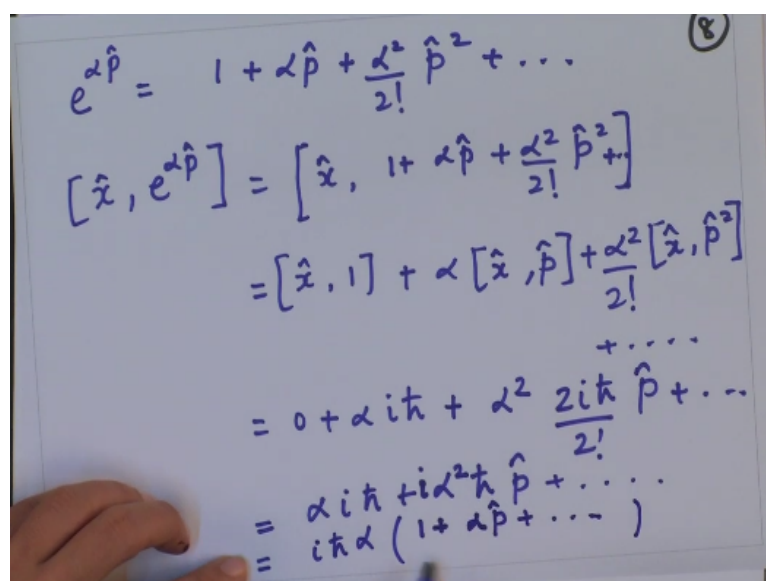 ⑧
e^{αp̂} = 1 + αp̂ + α²/2! p̂² + ...
[x̂, e^{αp̂}] = [x̂, 1 + αp̂ + α²/2! p̂² + ..]
= [x̂, 1] + α [x̂, p̂] + α²/2! [x̂, p̂²]
+ ....
= 0 + α iħ + α² 2iħ/2! p̂ + ...
= α iħ + iα²ħ p̂ + .....
= iħα (1 + αp̂ + ... )